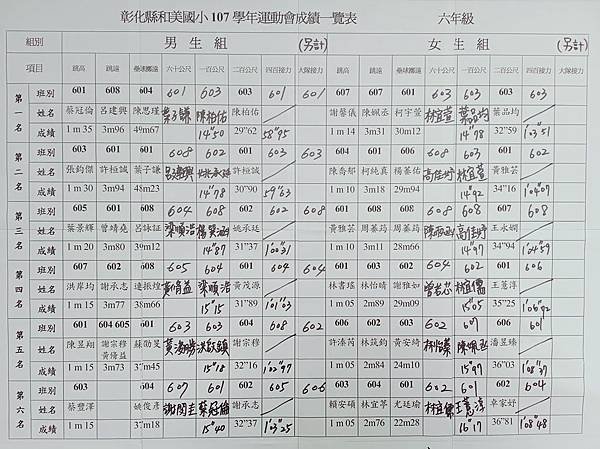 彰化縣和美國小 107 學年運動會成績一覽表 六年級
組別 男生組 (另計) 女生組 (另計)
項目 跳高 跳遠 壘球擲遠 六十公尺 一百公尺 二百公尺 四百接力 大隊接力 跳高 跳遠 壘球擲遠 六十公尺 一百公尺 二百公尺 四百接力 大隊接力
第一名
班別 601 608 604 601 603 603 601 601 607 607 604 603 603 603 603
姓名 蔡冠倫 呂建興 陳思瑾 葉子謙 陳柏佑 陳柏佑 謝馨儀 陳姵丞 柯宇萱 林宜萱 葉品均 葉品均
成績 1 m 35 3m96 49m67 14"50 29"62 58"95 1 m 14 3m31 30m12 14"78 32"59 1'03"51
第二名
班別 603 601 601 608 602 601 603 603 604 601 606 608 603 601 602
姓名 張鈞傑 許桓誠 葉子謙 呂建興 許桓誠 陳喬郁 柯純真 楊蓁佑 高佳妤 林宜萱 黃雅芸
成績 1 m 30 3m94 48m23 14"78 30"90 59"63 1 m 10 3m18 29m94 14"92 34"16 1'04"07
第三名
班別 605 601 608 604 608 602 602 608 601 608 608 608 608 607 608
姓名 葉景輝 曾靖堯 呂詠証 梁順浩 姚承廷 黃雅芸 周蓁筠 周蓁筠 高佳妤 王永嫻
成績 1 m 20 3m80 39m12 14"87 31"37 1'00"31 1 m 10 3m11 28m66 14"97 34"94 1'04"59
第四名
班別 607 602 608 605 604 601 604 604 601 603 602 604 602 601 606
姓名 洪岸均 謝承志 連振煌 梁順浩 黃茂源 林書瑤 林怡晴 謝雅如 林宜儒 王薏淳
成績 1 m 15 3m77 38m66 15"15 31"89 1'01"03 1 m 05 2m89 29m09 15"05 35"25 1'06"92
第五名
班別 601 604 605 601 603 603 604 608 602 602 606 603 602 607 606 601
姓名 陳昱翔 謝宗穆 黃脩益 蘇勖旻 謝宗穆 許漆芮 林筑鈞 黃安綺 陳姵丞 潘昱臻
成績 1 m 15 3m73 37m45 15"18 32"16 1'02"97 1 m 05 2m84 24m10 15"97 36"03 1'08"37
第六名
班別 603 604 607 601 602 605 606 603 604 601 602 601 602 604
姓名 蔡豐澤 姚俊彥 蔡冠倫 謝承志 賴安碩 林宜苓 尤廷瑜 林宜儒 王薏淳 卓家妤
成績 1 m 15 37m18 15"40 32"37 1'03"25 1 m 05 2m76 22m28 16"17 36"81 1'08"48